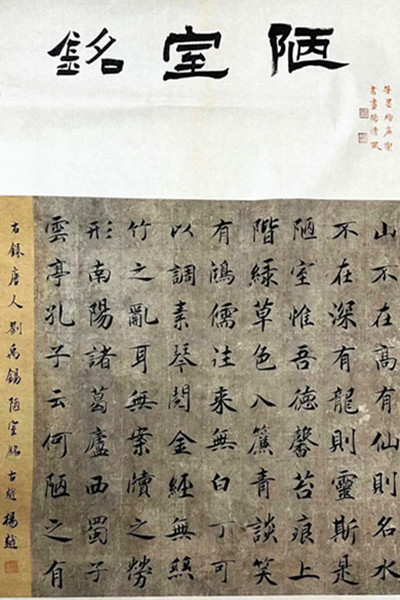 陋室銘
書畫清風
山不在高有仙則名水
不在深有龍則靈斯是
陋室惟吾德馨苔痕上
階綠草色入簾青談笑
有鴻儒往來無白丁可
以調素琴閱金經無絲
竹之亂耳無案牘之勞
形南陽諸葛廬西蜀子
雲亭孔子云何陋之有
右錄唐人劉禹錫陋室銘古越楊越